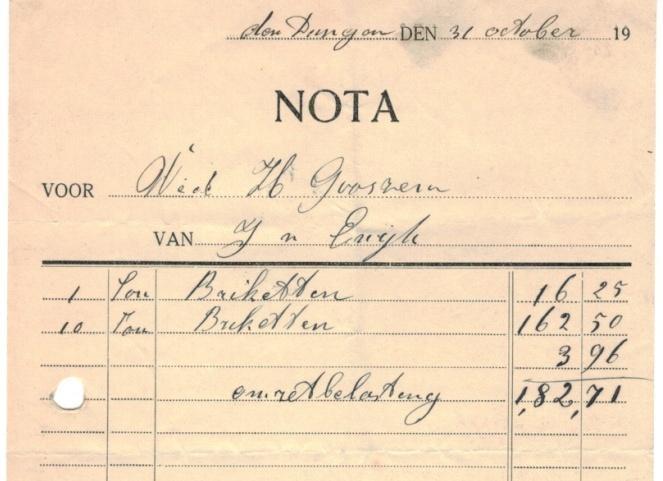 den Dungen DEN 31 october 19
NOTA
VOOR Wed H Goossens
VAN J v Erijk
1 Ton Briketten 16 25
10 Ton Briketten 162 50
3 96
omzetbelasting 182,71